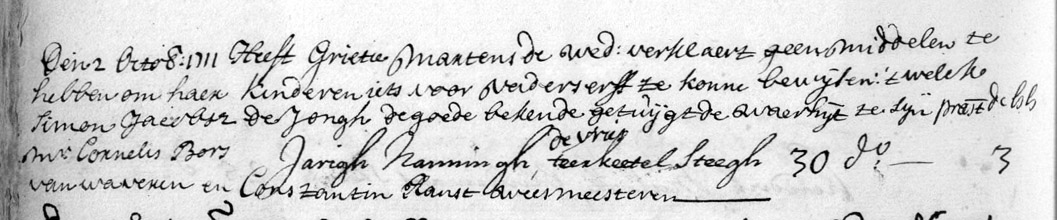 Den 2 Octob: 1711 Heeft Grietie Martens de wed: verklaert geen middelen te
hebben om haer kinderen iets voor vaders erff te konne bewijsen: 't welck
Simon Jacobsz de Jongh de goede bekende getuijgt de waerhijt te sijn præst de hh
Mr Cornelis Bors
van waveren en Constantin Ranst weesmeesteren
Jarigh Nanningh teerketel Steegh 30 do — 3
de vrus